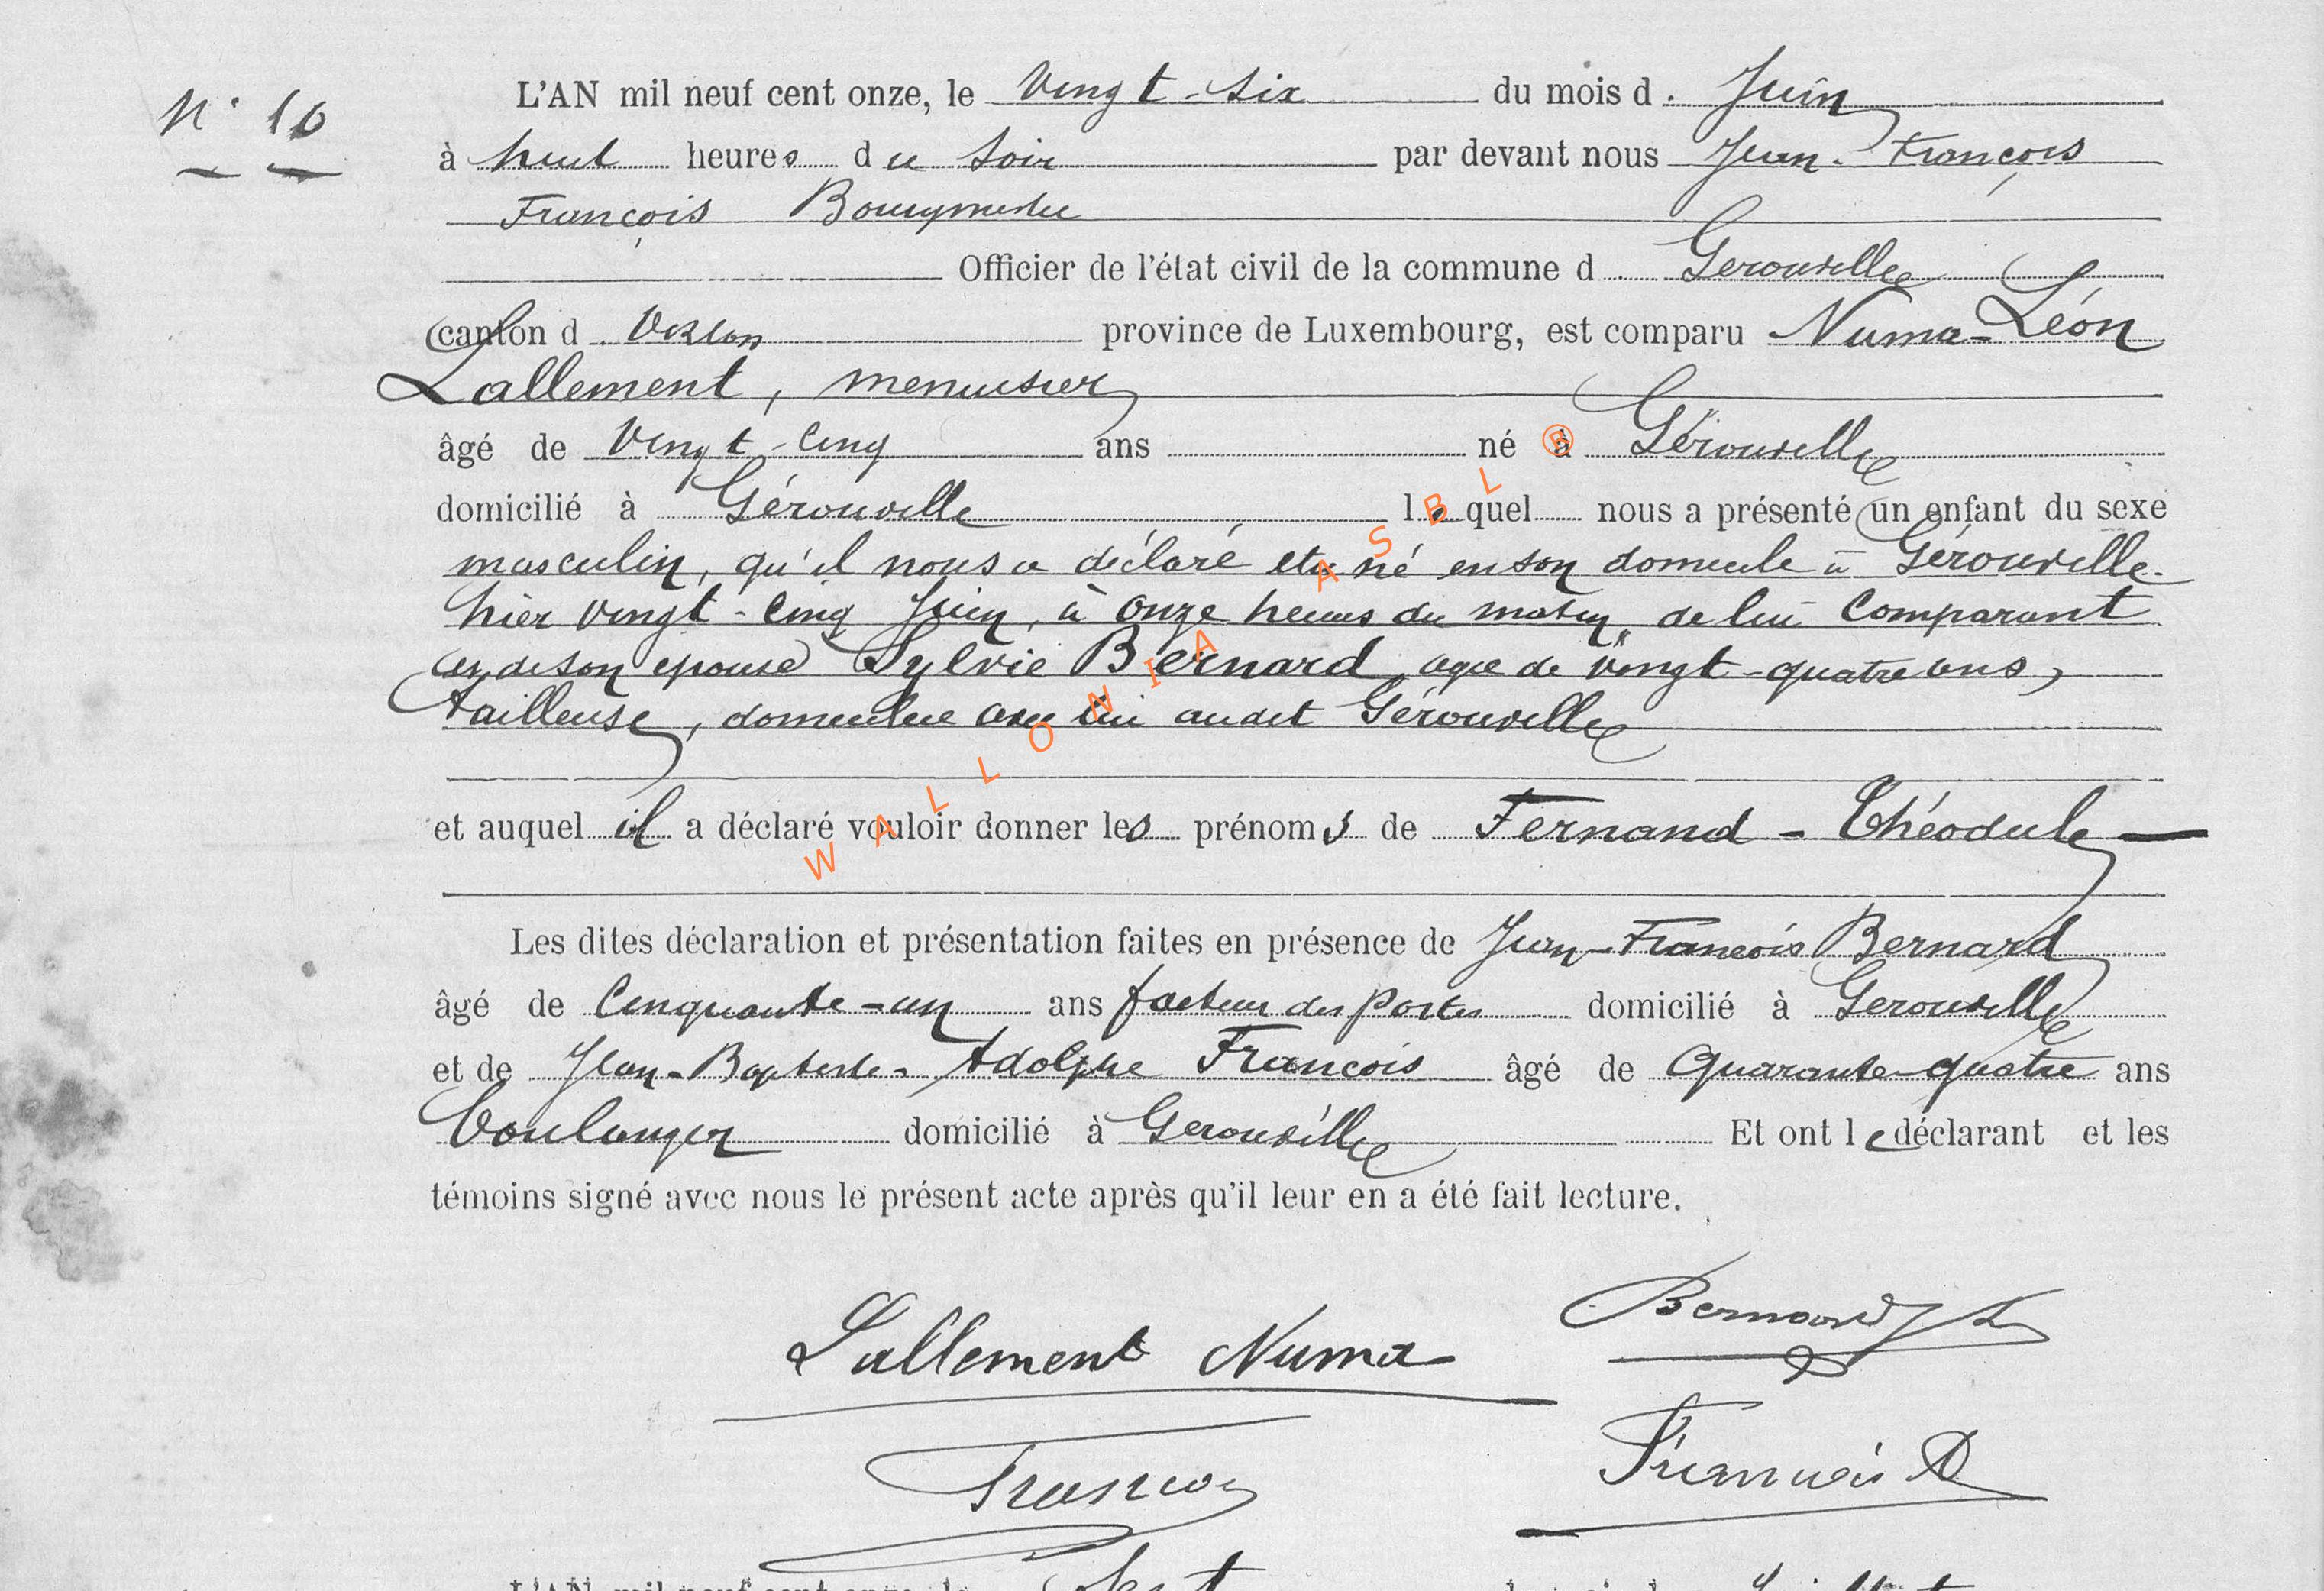 N° 16
L'AN mil neuf cent onze, le Vingt-Six du mois d. Juin
à huit heures du Soir par devant nous Jean-François
François Bourgmestre
Officier de l'état civil de la commune d. Gerouville
canton d. Virton province de Luxembourg, est comparu Numa-Léon
Lallement, menuisier
âgé de Vingt-Cinq ans né à Gérouville
domicilié à Gérouville lequel nous a présenté un enfant du sexe
masculin, qu'il nous a déclaré etre né en son domicile à Gérouville
hier vingt-cinq Juin, à onze heures du matin, de lui Comparant
et de son epouse Sylvie Bernard agée de vingt-quatre ans,
tailleuse, domiciliée avec lui audit Gérouville
et auquel il a déclaré vouloir donner les prénoms de Fernand-Théodule
Les dites déclaration et présentation faites en présence de Jean-Francois Bernard
âgé de Cinquante-un ans facteur des postes domicilié à Gerouville
et de Jean-Baptiste-Adolphe Francois âgé de Quarante-quatre ans
boulanger domicilié à Gerouville Et ont le déclarant et les
témoins signé avec nous le présent acte après qu'il leur en a été fait lecture.
Lallement Numa Bernard
François François A
WALLONIA ASBL ®
L'AN mil neuf cent onze, le Sept